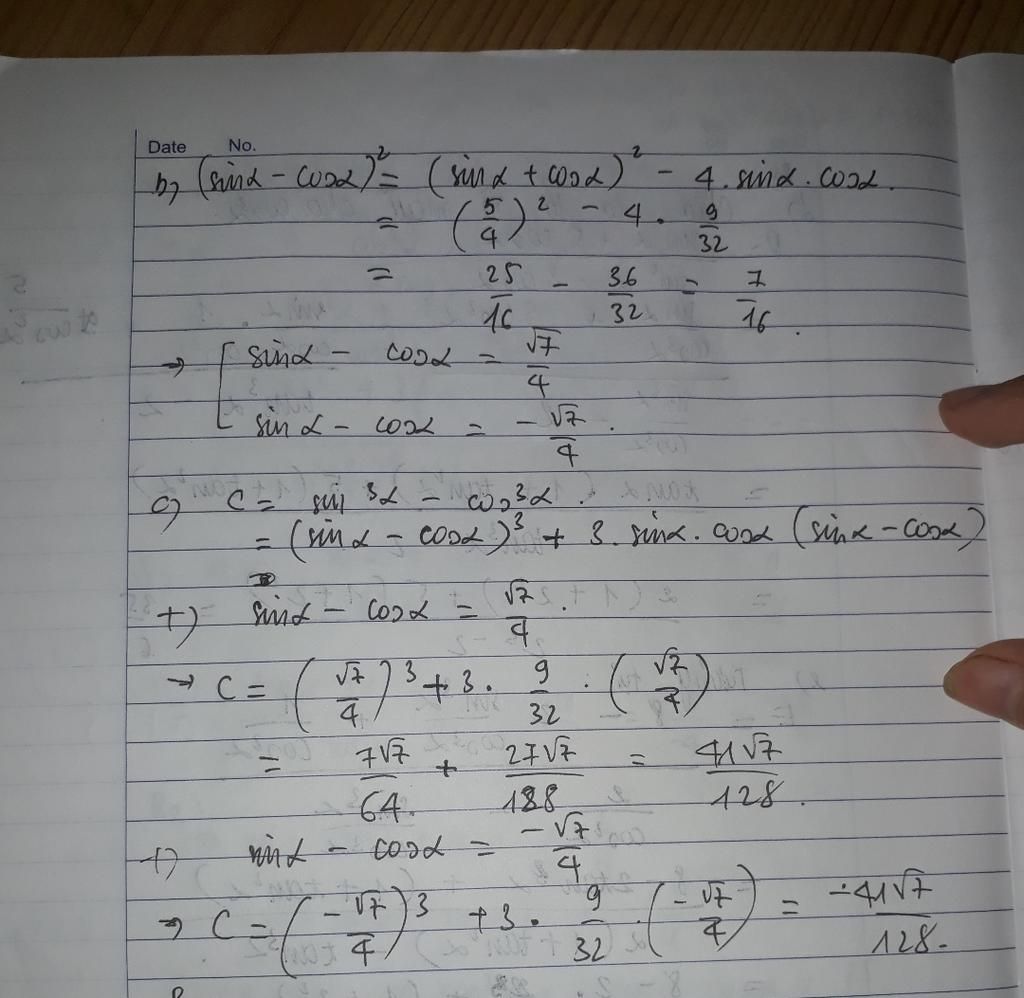 Date No.
b) (sinα - cosα)² = (sinα + cosα)² - 4.sinα.cosα.
= (5/4)² - 4 . 9/32
= 25/16 - 36/32 = 7/16.
→ [ sinα - cosα = √7/4
sinα - cosα = -√7/4.
c) C = sin³α - cos³α.
= (sinα - cosα)³ + 3.sinα.cosα (sinα - cosα)
+) sinα - cosα = √7/4.
→ C = (√7/4)³ + 3. 9/32 . (√7/4)
= 7√7/64 + 27√7/128 = 41√7/128.
+) sinα - cosα = -√7/4
→ C = (-√7/4)³ + 3. 9/32 . (-√7/4) = -41√7/128.